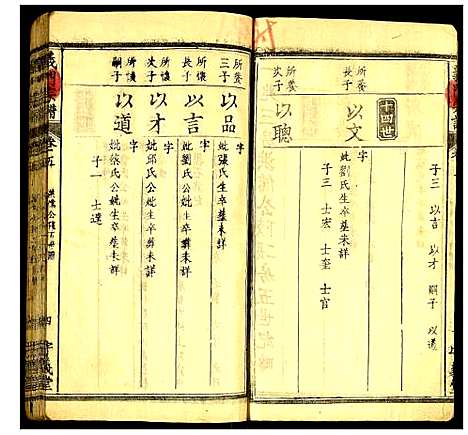 子三 以言 以才 嗣子 以道
十四世
所養長子
以文
字
妣劉氏生卒墓未詳
子三 士宏 士奎 士官
所養次子
以聰
所養三子
以品
字
妣張氏生卒墓未詳
所懷長子
以言
字
妣劉氏公妣生卒墓未詳
所懷次子
以才
字
妣邱氏公妣生卒墓未詳
所懷嗣子
以道
字
妣蔡氏公妣生卒墓未詳
子一 士達
卷十五
四